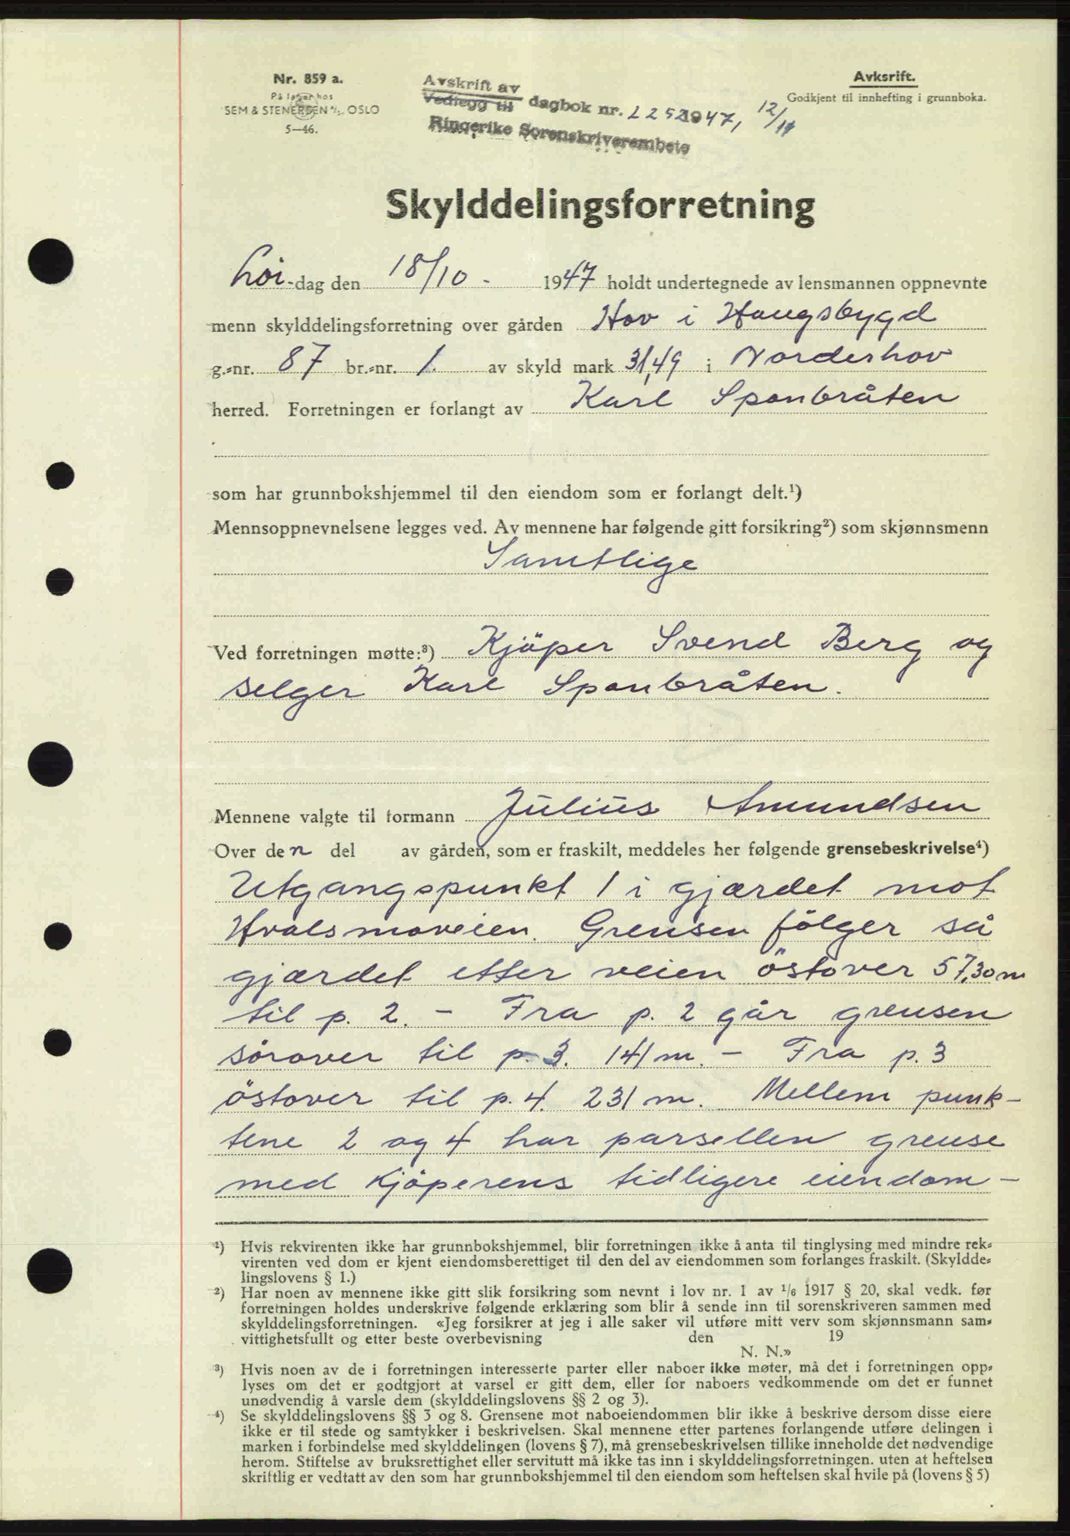 Nr. 859 a.
På lager hos
SEM & STENERSEN A/S, OSLO
5—46.
Avskrift av
Vedlegg til dagbok nr. 2252 1947, 12/11
Ringerike Sorenskriverembete
Avskrift.
Godkjent til innhefting i grunnboka.
Skylddelingsforretning
Löi-dag den 18/10 - 1947 holdt undertegnede av lensmannen oppnevnte
menn skylddelingsforretning over gården Hov i Haugsbygd
g.-nr. 87 br.-nr. 1. av skyld mark 31,49 i Norderhov
herred. Forretningen er forlangt av Karl Sponbråten
som har grunnbokshjemmel til den eiendom som er forlangt delt.¹)
Mennsoppnevnelsene legges ved. Av mennene har følgende gitt forsikring²) som skjønnsmenn
Samtlige
Ved forretningen møtte:³) Kjöper Svend Berg og
selger Karl Sponbråten.
Mennene valgte til formann Julius Amundsen
Over den del av gården, som er fraskilt, meddeles her følgende grensebeskrivelse⁴)
Utgangspunkt 1 i gjærdet mot
Hvalsmoveien. Grensen fölger så
gjærdet etter veien östover 57,30 m
til p. 2. - Fra p. 2 går grensen
sörover til p. 3. 141 m. - Fra p. 3
östover til p. 4. 231 m. Mellem punk-
tene 2 og 4 har parsellen grense
med kjöperens tidligere eiendom-
¹) Hvis rekvirenten ikke har grunnbokshjemmel, blir forretningen ikke å anta til tinglysing med mindre rek-
virenten ved dom er kjent eiendomsberettiget til den del av eiendommen som forlanges fraskilt. (Skyldde-
lingslovens § 1.)
²) Har noen av mennene ikke gitt slik forsikring som nevnt i lov nr. 1 av 1/6 1917 § 20, skal vedk. før
forretningen holdes underskrive følgende erklæring som blir å sende inn til sorenskriveren sammen med
skylddelingsforretningen. «Jeg forsikrer at jeg i alle saker vil utføre mitt verv som skjønnsmann sam-
vittighetsfullt og etter beste overbevisning den 19
N. N.»
³) Hvis noen av de i forretningen interesserte parter eller naboer ikke møter, må det i forretningen opp-
lyses om det er godtgjort at varsel er gitt dem, eller for naboers vedkommende om det er funnet
unødvendig å varsle dem (skylddelingslovens §§ 2 og 3).
⁴) Se skylddelingslovens §§ 3 og 8. Grensene mot naboeiendommen blir ikke å beskrive dersom disse eiere
ikke er til stede og samtykker i beskrivelsen. Skal mennene etter partenes forlangende utføre delingen i
marken i forbindelse med skylddelingen (lovens § 7), må grensebeskrivelsen tillike inneholde det nødvendige
herom. Stiftelse av bruksrettighet eller servitutt må ikke tas inn i skylddelingsforretningen. uten at heftelsen
skriftlig er vedtatt av den som har grunnbokshjemmel til den eiendom som heftelsen skal hvile på (lovens § 5)